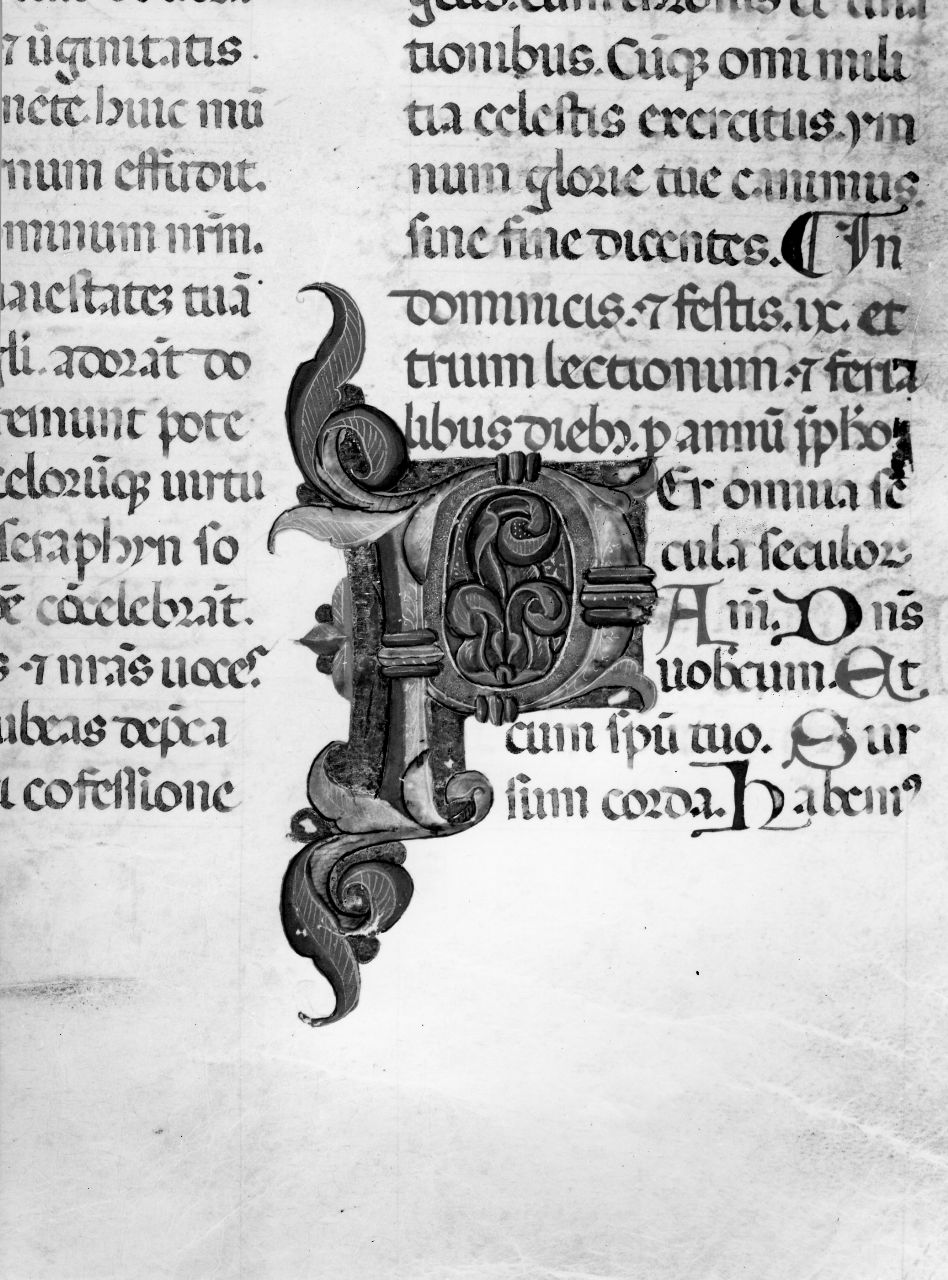 ⁊ ũginitatis.
mẽte huic mũ
num effudit.
minum nr̃m.
maiestatez tuã
gli. adorãt do
remunt pote
celorũqꝫ uirtu
seraphyn so
cõcelebrãt.
s ⁊ nr̃as uoces
ubeas dep̃ca
cõfessione
tionibus. Cũqꝫ omi mili
tia celestis exercitus. ym
num glorie tue canimus.
sine fine dicentes. In
dominicis. ⁊ festis. ix. et
trium lectionum. ⁊ feria
libus diebꝫ. p annũ
Per omnia se
cula seculoꝝ
Am̃. Dñs
uobcum. Et
cum sp̃u tuo. Sur
sum corda. Habemꝰ